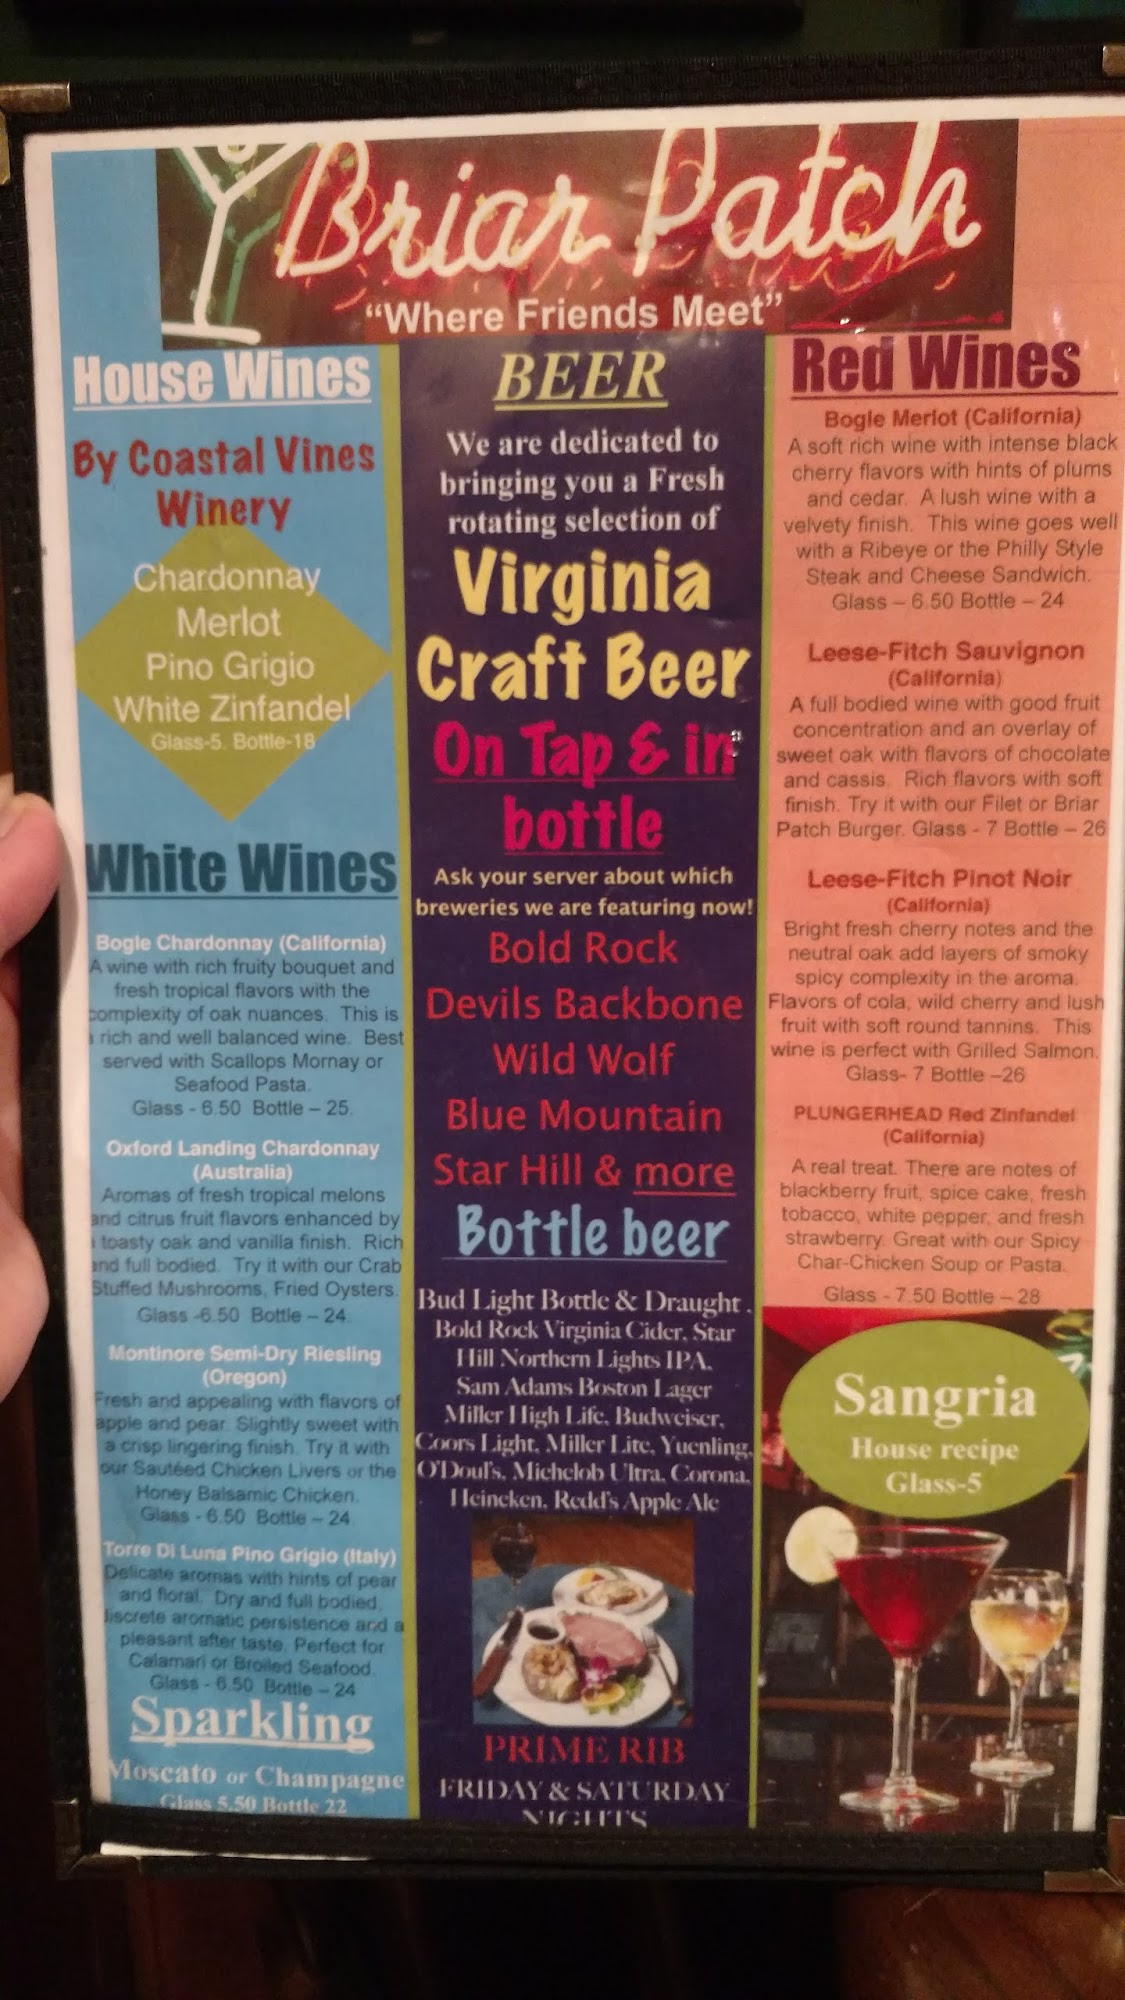 Briar Patch
“Where Friends Meet”
House Wines
By Coastal Vines
Winery
Chardonnay
Merlot
Pino Grigio
White Zinfandel
Glass-5. Bottle-18
White Wines
Bogle Chardonnay (California)
A wine with rich fruity bouquet and
fresh tropical flavors with the
complexity of oak nuances. This is
rich and well balanced wine. Best
served with Scallops Mornay or
Seafood Pasta.
Glass - 6.50 Bottle – 25.
Oxford Landing Chardonnay
(Australia)
Aromas of fresh tropical melons
and citrus fruit flavors enhanced by
toasty oak and vanilla finish. Rich
and full bodied. Try it with our Crab
Stuffed Mushrooms, Fried Oysters.
Glass -6.50 Bottle – 24.
Montinore Semi-Dry Riesling
(Oregon)
Fresh and appealing with flavors of
apple and pear. Slightly sweet with
a crisp lingering finish. Try it with
our Sautéed Chicken Livers or the
Honey Balsamic Chicken.
Glass - 6.50 Bottle – 24.
Torre Di Luna Pino Grigio (Italy)
Delicate aromas with hints of pear
and floral. Dry and full bodied,
discrete aromatic persistence and a
pleasant after taste. Perfect for
Calamari or Broiled Seafood.
Glass - 6.50 Bottle – 24
Sparkling
Moscato or Champagne
Glass 5.50 Bottle 22
BEER
We are dedicated to
bringing you a Fresh
rotating selection of
Virginia
Craft Beer
On Tap & in
bottle
Ask your server about which
breweries we are featuring now!
Bold Rock
Devils Backbone
Wild Wolf
Blue Mountain
Star Hill & more
Bottle beer
Bud Light Bottle & Draught ,
Bold Rock Virginia Cider, Star
Hill Northern Lights IPA,
Sam Adams Boston Lager
Miller High Life, Budweiser,
Coors Light, Miller Lite, Yuenling,
O'Doul's, Michelob Ultra, Corona,
Heineken, Redd's Apple Ale
PRIME RIB
FRIDAY & SATURDAY
NIGHTS
Red Wines
Bogle Merlot (California)
A soft rich wine with intense black
cherry flavors with hints of plums
and cedar. A lush wine with a
velvety finish. This wine goes well
with a Ribeye or the Philly Style
Steak and Cheese Sandwich.
Glass – 6.50 Bottle – 24
Leese-Fitch Sauvignon
(California)
A full bodied wine with good fruit
concentration and an overlay of
sweet oak with flavors of chocolate
and cassis. Rich flavors with soft
finish. Try it with our Filet or Briar
Patch Burger. Glass - 7 Bottle – 26
Leese-Fitch Pinot Noir
(California)
Bright fresh cherry notes and the
neutral oak add layers of smoky
spicy complexity in the aroma.
Flavors of cola, wild cherry and lush
fruit with soft round tannins. This
wine is perfect with Grilled Salmon.
Glass- 7 Bottle –26
PLUNGERHEAD Red Zinfandel
(California)
A real treat. There are notes of
blackberry fruit, spice cake, fresh
tobacco, white pepper, and fresh
strawberry. Great with our Spicy
Char-Chicken Soup or Pasta.
Glass - 7.50 Bottle – 28
Sangria
House recipe
Glass-5